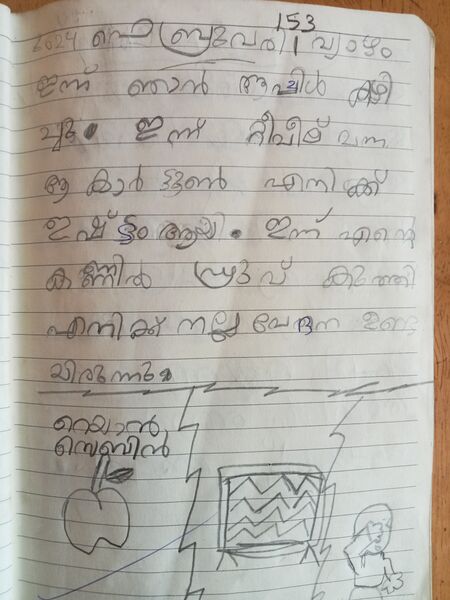 153
2024 ഫെബ്രുവരി 1 വ്യാഴം
ഇന്ന് ഞാൻ ആപ്പിൾ കഴി
ച്ചു. ഇന്ന് ടീവീല് വന്ന
ആ കാർ ട്ടൂൺ എനിക്ക്
ഇഷ്ട്ടം ആയി. ഇന്ന് എന്റെ
കണ്ണിൽ ധ്രുവ് കുത്തി
എനിക്ക് നല്ല വേദന ഉണ്ടാ
യിരുന്നു.
റെയാൻ
സെബിൻ